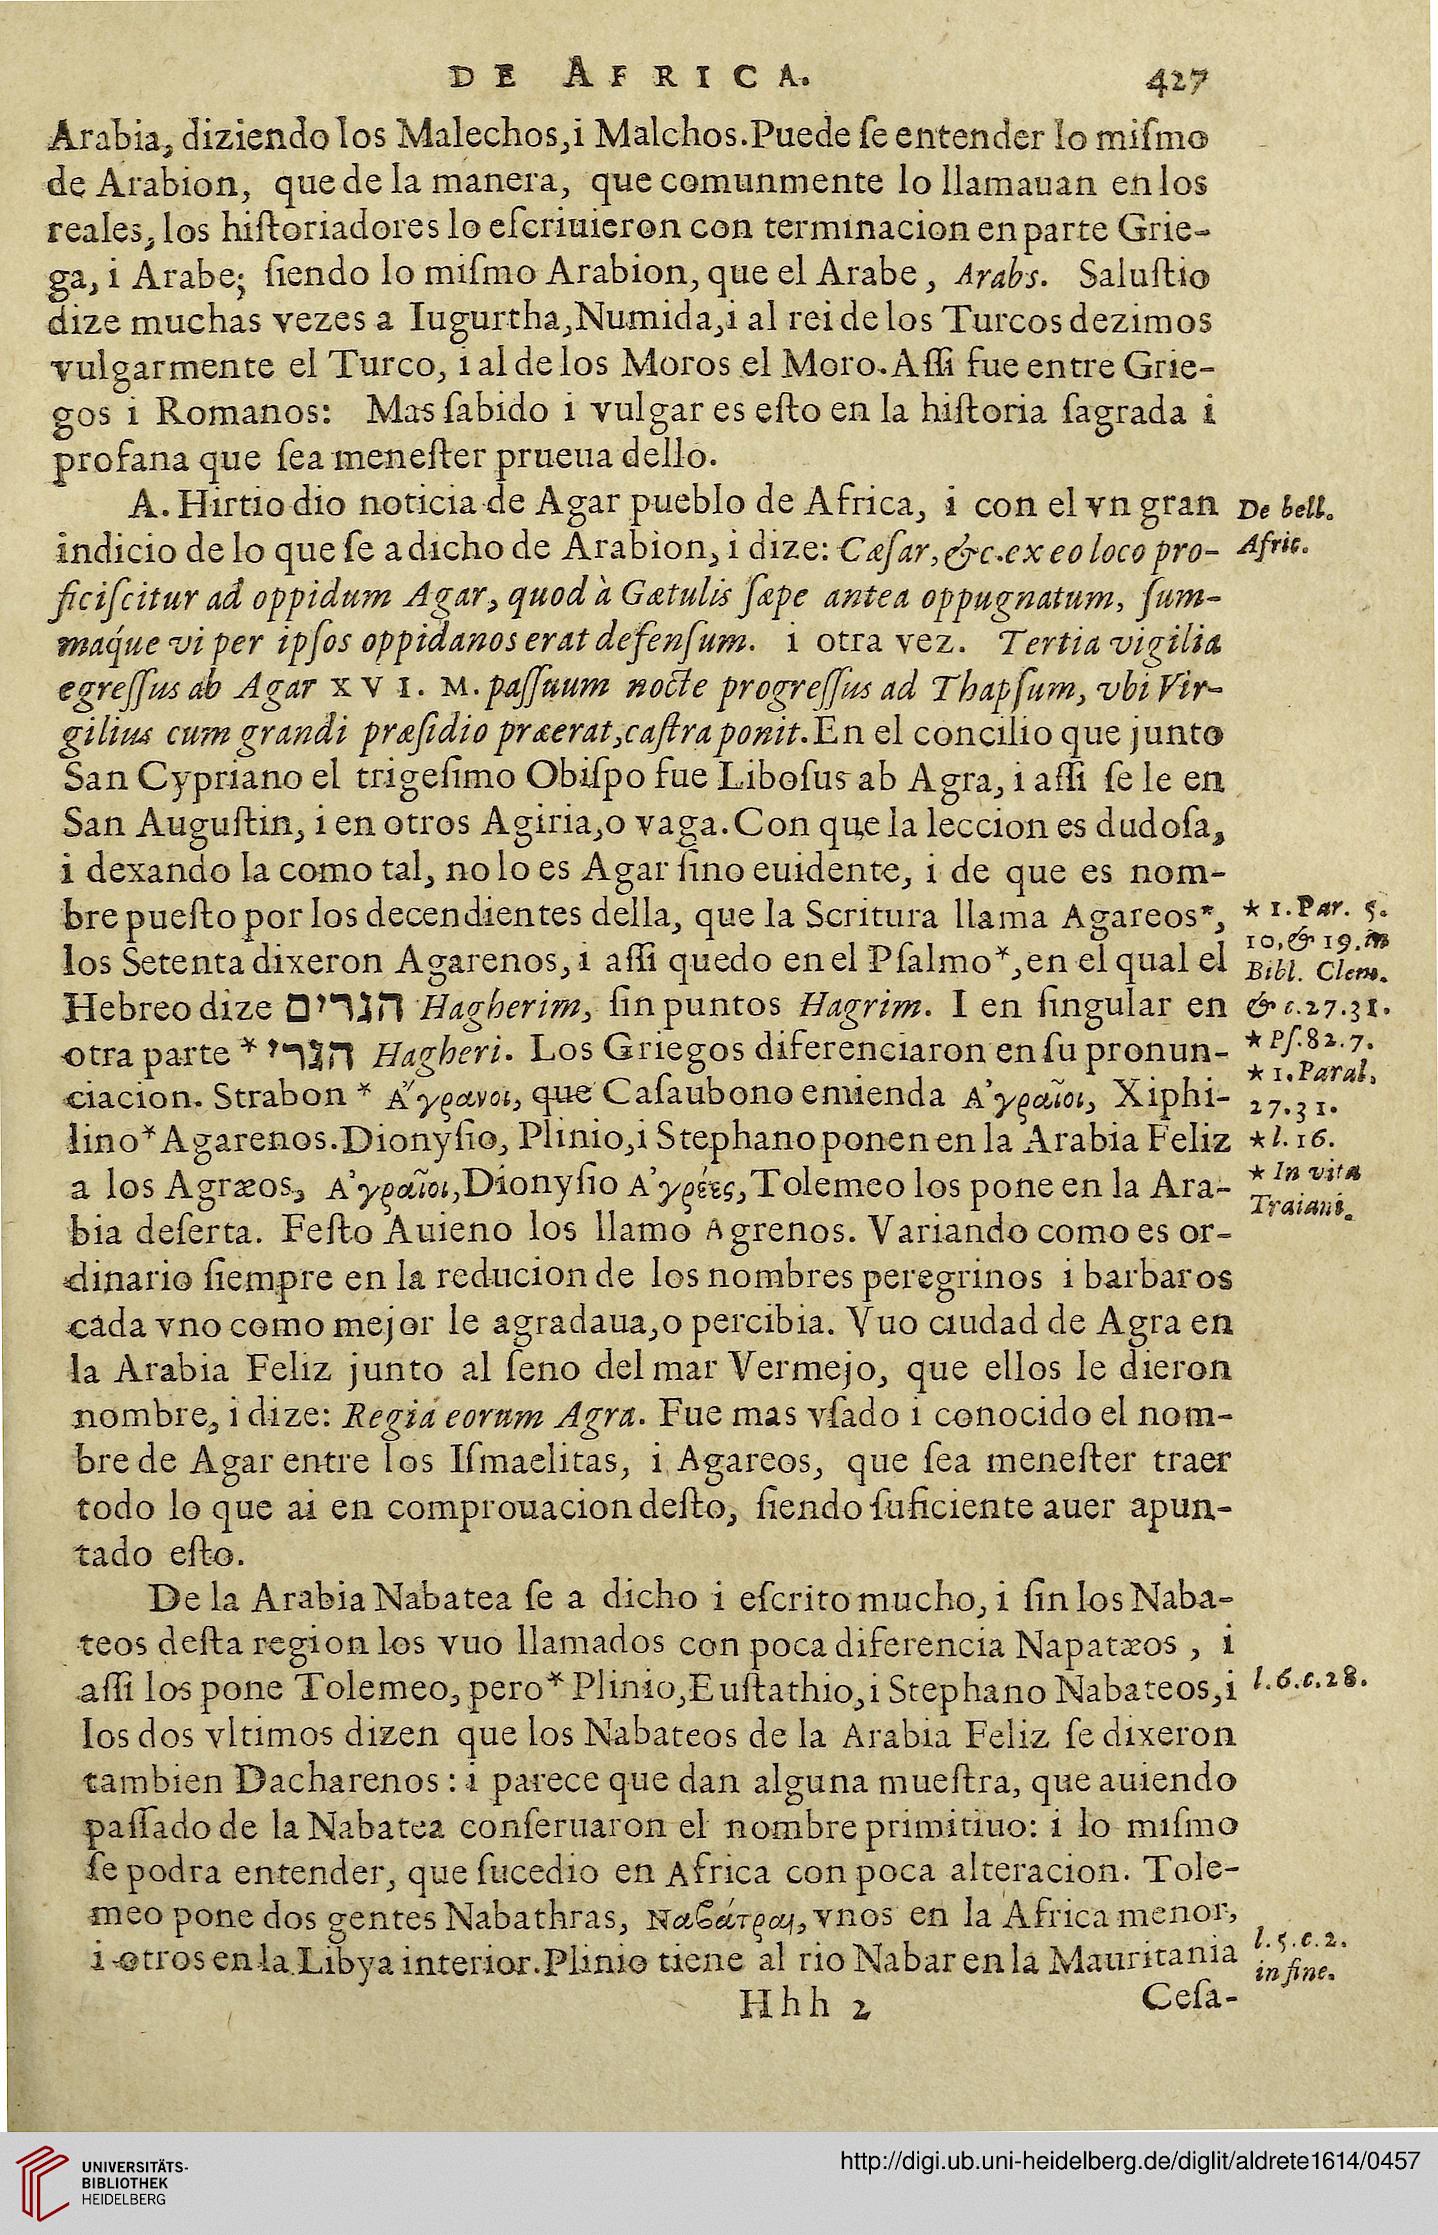 DE AFRICA. 427
Arabia, diziendo los Malechos, i Malchos. Puede ſe entender lo miſmo
de Arabion, que de la manera, que comunmente lo llamauan en los
reales, los hiſtoriadores lo eſcriuieron con terminacion en parte Grie-
ga, i Arabe; ſiendo lo miſmo Arabion, que el Arabe, Arabs. Saluſtio
dize muchas vezes a Iugurtha, Numida, i al rei de los Turcos dezimos
vulgarmente el Turco, i al de los Moros el Moro. Aſſi fue entre Grie-
gos i Romanos: Mas ſabido i vulgar es eſto en la hiſtoria ſagrada i
profana que ſea meneſter prueua dello.
A. Hirtio dio noticia de Agar pueblo de Africa, i con el vn gran
De bell.
indicio de lo que ſe a dicho de Arabion, i dize: Cæſar, &c. ex eo loco pro-
Afric.
ficiſcitur ad oppidum Agar, quod à Gætulis ſæpe antea oppugnatum, ſum-
maq́ue vi per ipſos oppidanos erat defenſum. i otra vez. Tertia vigilia
egreſſus ab Agar XVI. M. paſſuum nocte progreſſus ad Thapſum, vbi Vir-
gilius cum grandi præſidio præerat, caſtra ponit. En el concilio que junto
San Cypriano el trigeſimo Obiſpo fue Liboſus ab Agra, i aſſi ſe le en
San Auguſtin, i en otros Agiria, o vaga. Con que la leccion es dudoſa,
i dexando la como tal, no lo es Agar ſino euidente, i de que es nom-
bre pueſto por los decendientes della, que la Scritura llama Agareos*,
* 1. Par. 5.
los Setenta dixeron Agarenos, i aſſi quedo en el Pſalmo*, en el qual el
10, & 19. in
Bibl. Clem.
Hebreo dize הגרים Hagherim, ſin puntos Hagrim. I en ſingular en
& c. 27. 31.
otra parte * הגרי Hagheri. Los Griegos diferenciaron en ſu pronun-
* Pſ. 82. 7.
* 1. Paral.
ciacion. Strabon * Ἄγρανοι, que Caſaubono emienda Ἀγραῖοι, Xiphi-
27. 31.
lino* Agarenos. Dionyſio, Plinio, i Stephano ponen en la Arabia Feliz
* l. 16.
a los Agræos, Ἀγραῖοι, Dionyſio Ἀγρέες, Tolemeo los pone en la Ara-
* In vita
Traiani.
bia deſerta. Feſto Auieno los llamo Agrenos. Variando como es or-
dinario ſiempre en la reducion de los nombres peregrinos i barbaros
cada vno como mejor le agradaua, o percibia. Vuo ciudad de Agra en
la Arabia Feliz junto al ſeno del mar Vermejo, que ellos le dieron
nombre, i dize: Regia eorum Agra. Fue mas vſado i conocido el nom-
bre de Agar entre los Iſmaelitas, i Agareos, que ſea meneſter traer
todo lo que ai en comprouacion deſto, ſiendo ſuficiente auer apun-
tado eſto.
De la Arabia Nabatea ſe a dicho i eſcrito mucho, i ſin los Naba-
teos deſta region los vuo llamados con poca diferencia Napatæos, i
aſſi los pone Tolemeo, pero* Plinio, Euſtathio, i Stephano Nabateos, i
l. 6. c. 28.
los dos vltimos dizen que los Nabateos de la Arabia Feliz ſe dixeron
tambien Dacharenos: i parece que dan alguna mueſtra, que auiendo
paſſado de la Nabatea conſeruaron el nombre primitiuo: i lo miſmo
ſe podra entender, que ſucedio en Africa con poca alteracion. Tole-
meo pone dos gentes Nabathras, Ναβάτραι, vnos en la Africa menor,
i otros en la Libya interior. Plinio tiene al rio Nabar en la Mauritania
l. 5. c. 2.
in fine.
Hhh 2 Ceſa-
UNIVERSITÄTS-
BIBLIOTHEK
HEIDELBERG
http://digi.ub.uni-heidelberg.de/diglit/aldrete1614/0457